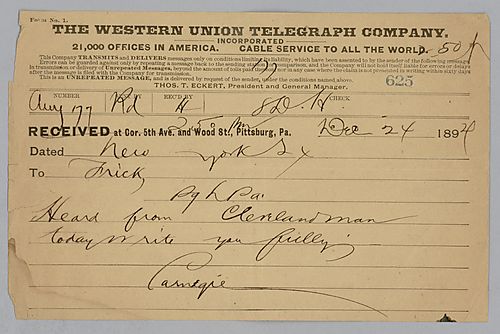 Form No. 1.
THE WESTERN UNION TELEGRAPH COMPANY.
INCORPORATED
21,000 OFFICES IN AMERICA. CABLE SERVICE TO ALL THE WORLD.
This Company TRANSMITS and DELIVERS messages only on conditions limiting its liability, which have been assented to by the sender of the following message.
Errors can be guarded against only by repeating a message back to the sending station for comparison, and the Company will not hold itself liable for errors or delays
in transmission or delivery of Unrepeated Messages, beyond the amount of tolls paid thereon, nor in any case where the claim is not presented in writing within sixty days
after the message is filed with the Company for transmission.
This is an UNREPEATED MESSAGE, and is delivered by request of the sender, under the conditions named above.
625
THOS. T. ECKERT, President and General Manager.
NUMBER SENT BY REC'D BY CHECK
177 Rd H 8 D.H.
RECEIVED at Cor. 5th Ave. and Wood St., Pittsburg, Pa. Dec 24 1894
Dated New York
To Frick
Pgh Pa.
Heard from Cleveland man
today write you fully
Carnegie